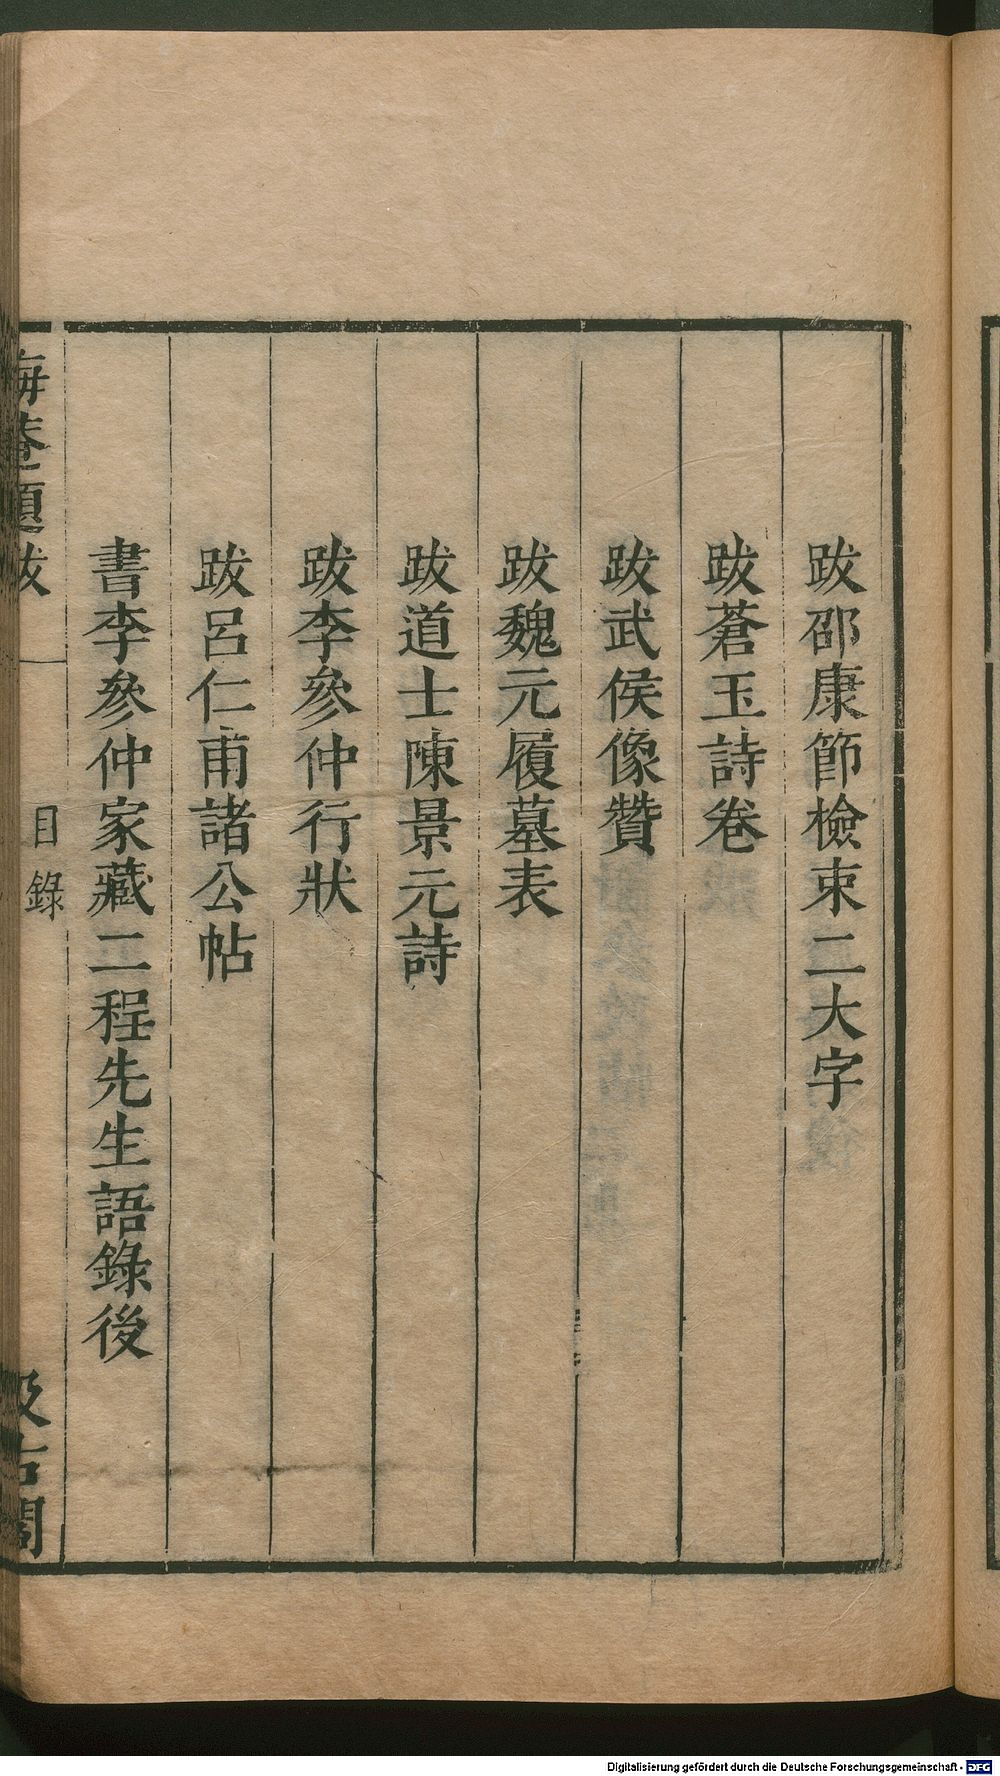 跋邵康節檢束二大字
跋蒼玉詩卷
跋武侯像贊
跋魏元履墓表
跋道士陳景元詩
跋李參仲行狀
跋呂仁甫諸公帖
書李參仲家藏二程先生語錄後
海菴題跋
目錄
汲古閣
Digitalisierung gefördert durch die Deutsche Forschungsgemeinschaft - DFG